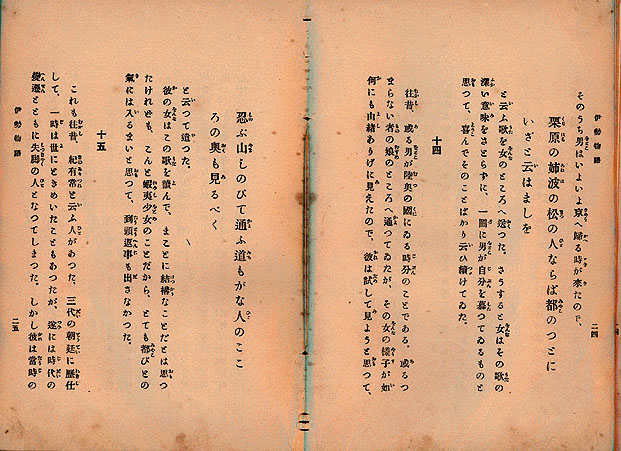 伊勢物語
二四
そのうち男はいよいよ京へ歸る時が來たので、
栗原の姉波の松の人ならば都のつとに
いざと云はましを
と云ふ歌を女のところへ送つた。さうすると女はその歌の
深い意味をさとらずに、一圖に男が自分を慕つてゐるものと
思つて、喜んでそのことばかり云ひ續けてゐた。
十四
往昔、或る男が陸奥の國にゐる時分のことである。或るつ
まらない者の娘のところへ通つてゐたが、その女の樣子が如
何にも由緒ありげに見えたので、彼は試して見ようと思つて、
忍ぶ山しのびて通ふ道もがな人のここ
ろの奥も見るべく
と云つて遣つた。
彼の女はこの歌を讀んで、まことに結構なことだとは思つ
たけれども、こんな蝦夷少女のことだから、とても都びとの
氣には入るまいと思つて、到頭返事も出さなかつた。
十五
これも往昔、紀有常と云ふ人があつた。三代の朝廷に歷仕
して、一時は世にときめいたこともあつたが、遂には時代の
變遷とともに失脚の人となつてしまつた。しかし彼は當時の
伊勢物語
二五